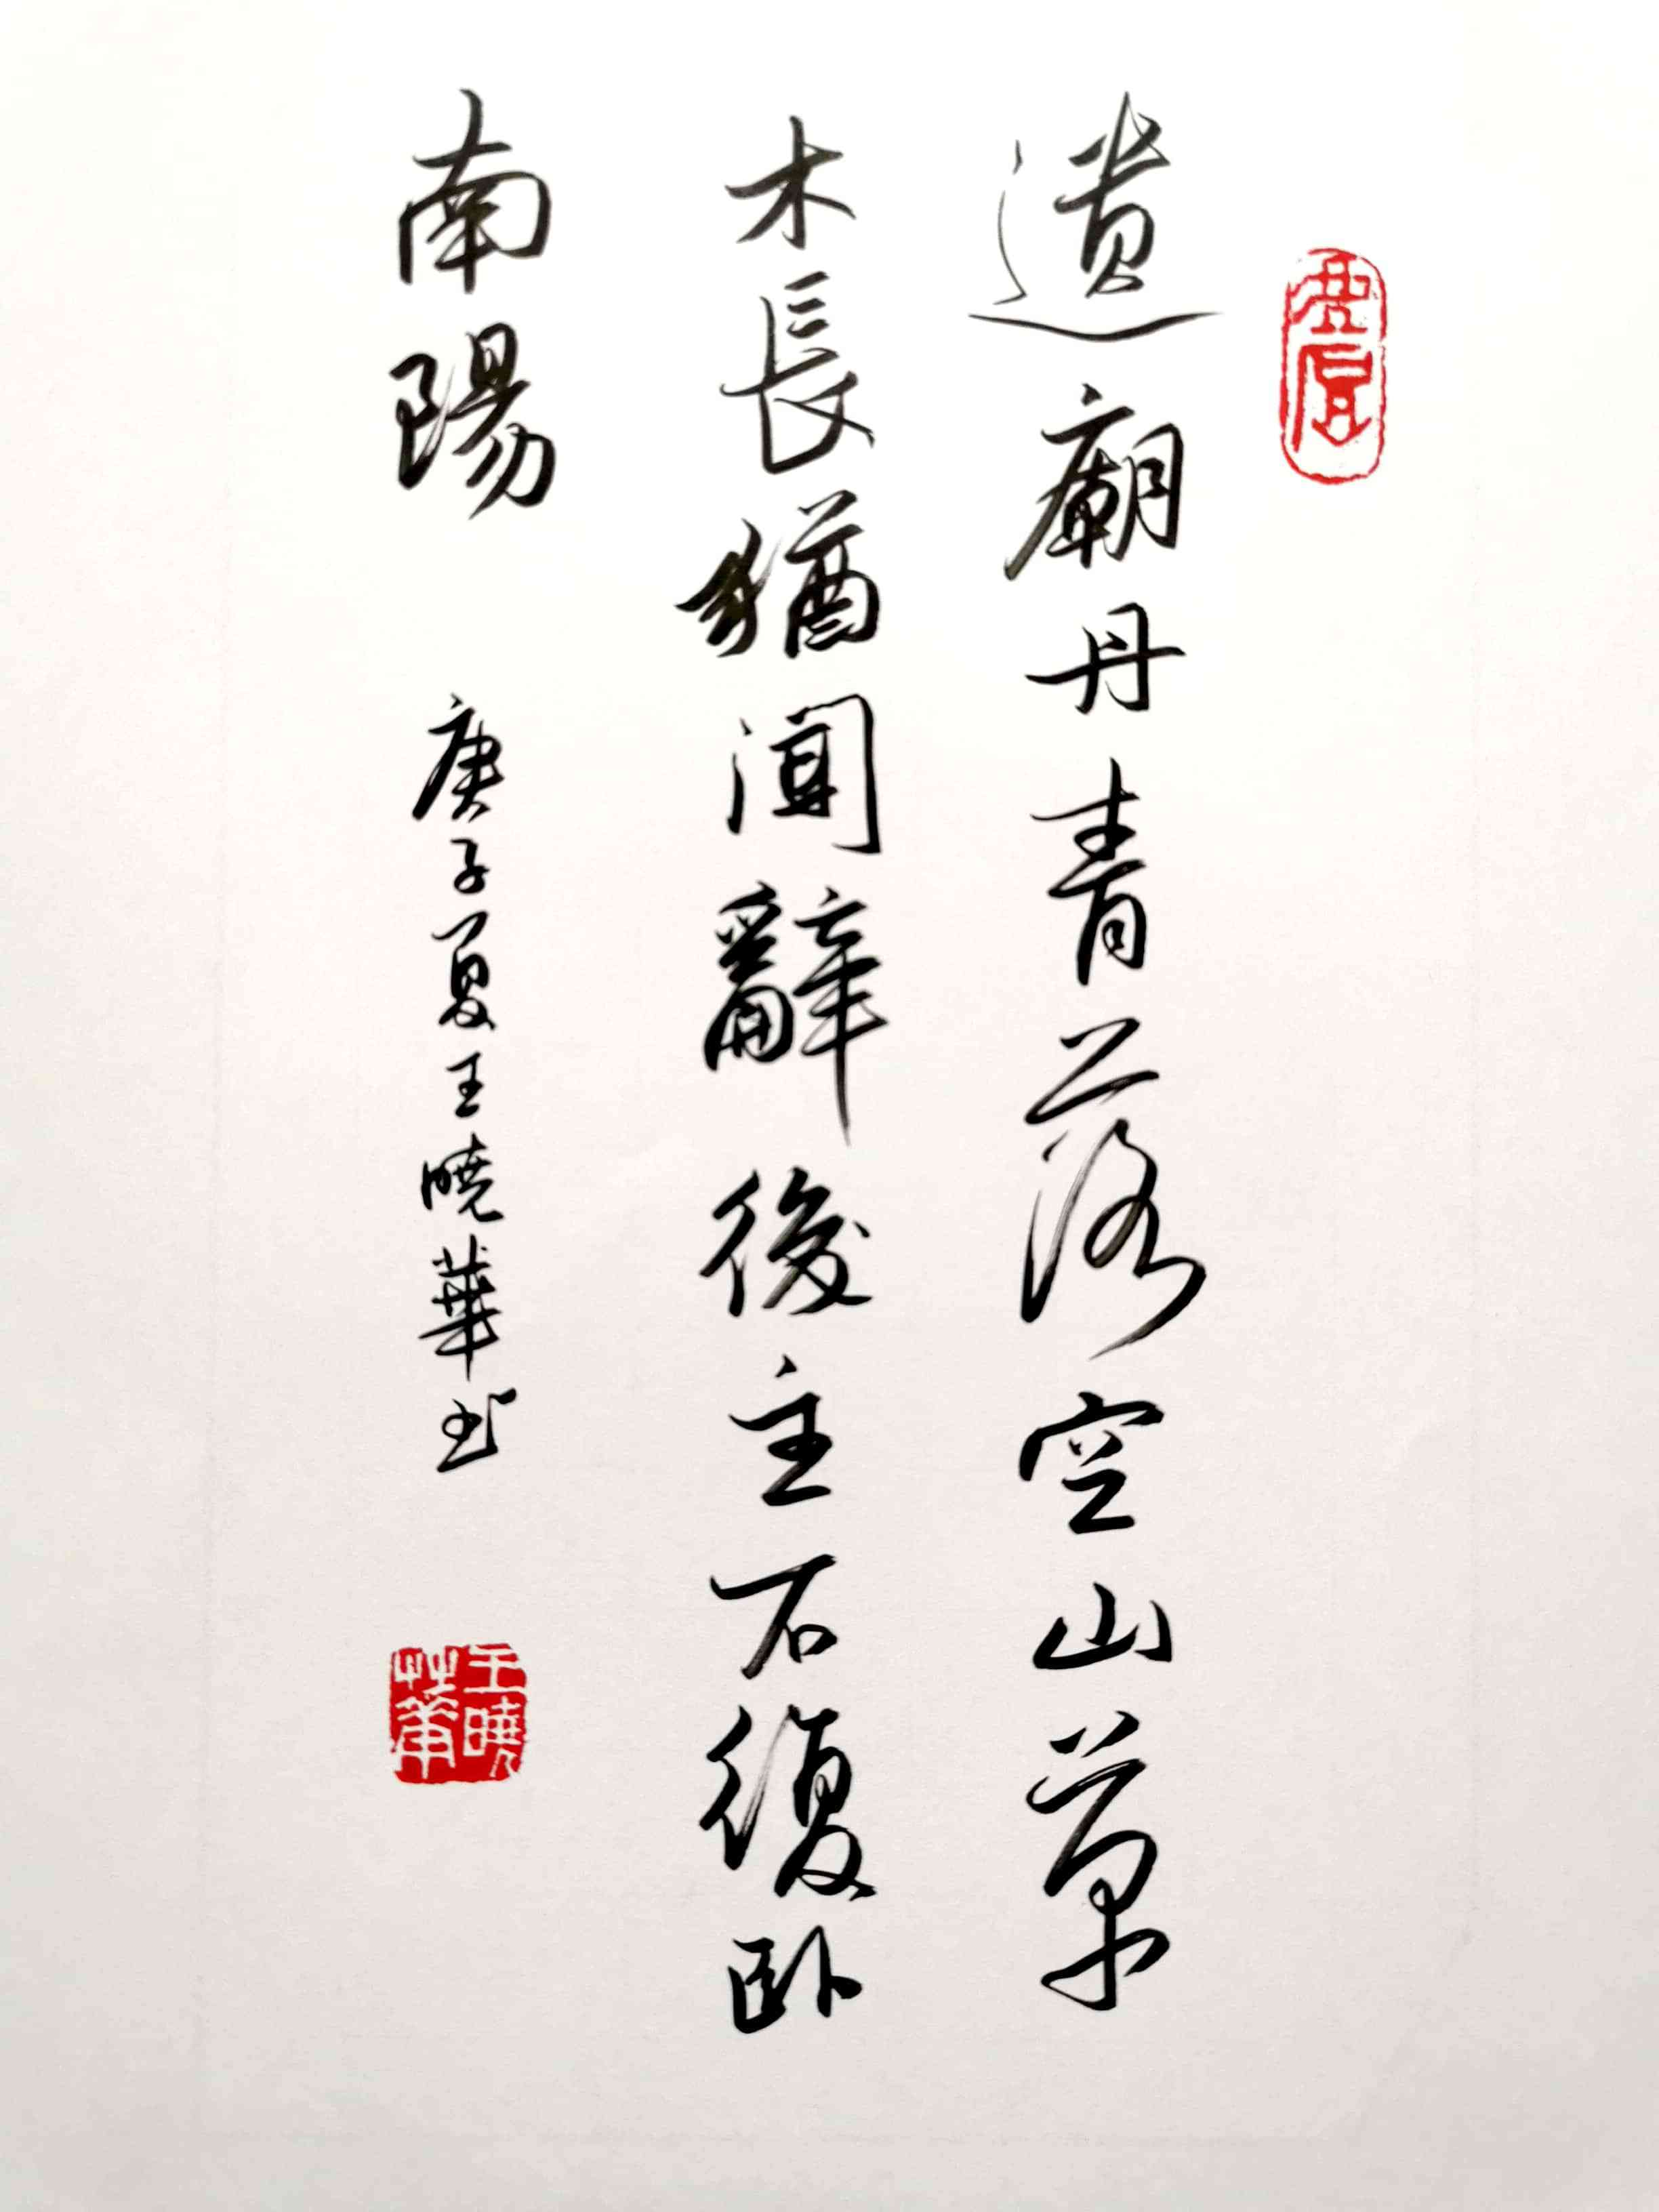 遺廟丹青落空山草
木長猶聞辭後主不復卧
南陽
庚子夏王曉華书
王曉華